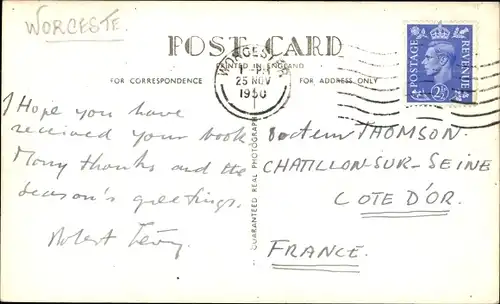 WORCESTE.
POST CARD
PRINTED IN ENGLAND
FOR CORRESPONDENCE
FOR ADDRESS ONLY
WORCESTER
1 - PM
25 NOV
1950
POSTAGE
REVENUE
2½ D
I Hope you have
received your book
Many thanks and the
season's greetings.
Robert
GUARANTEED REAL PHOTOGRAPH
Docteur THOMSON.
CHATILLON-SUR-SEINE
COTE D'OR.
FRANCE.